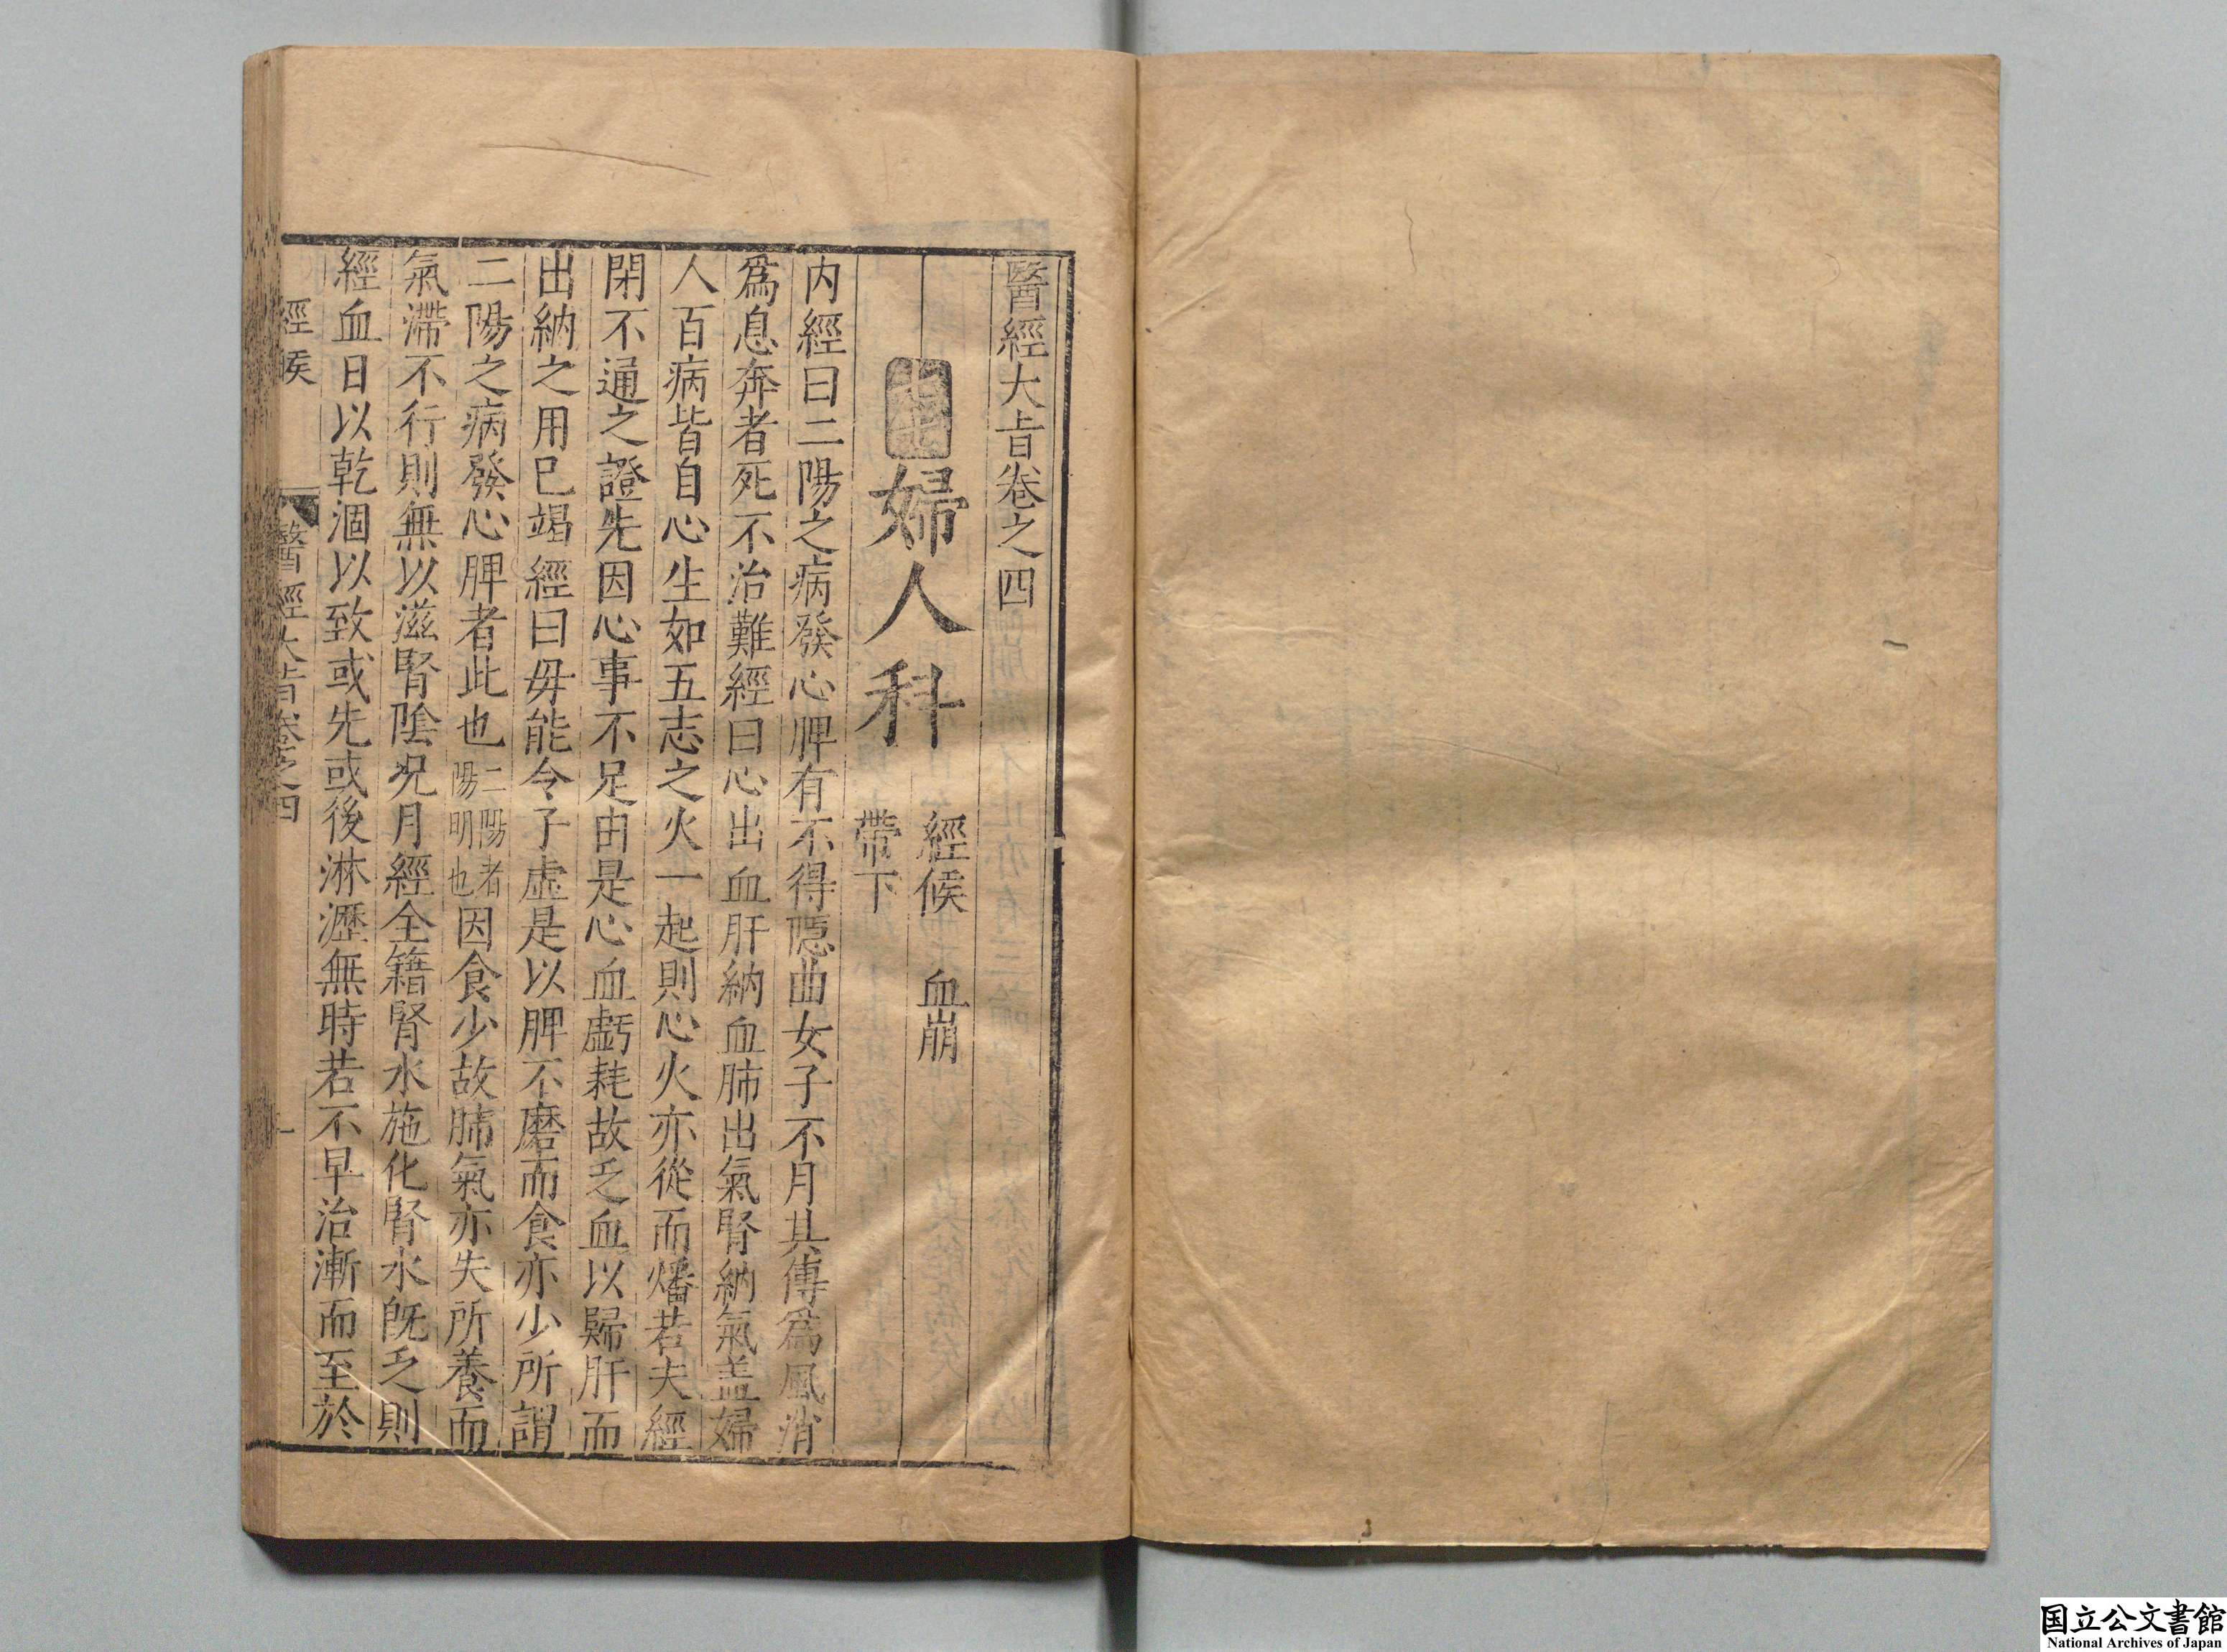 醫經大旨卷之四
婦人科
經候 血崩
帶下
内經曰二陽之病發心脾有不得隱曲女子不月其傳爲風消
爲息奔者死不治難經曰心出血肝納血肺出氣腎納氣盖婦
人百病皆自心生如五志之火一起則心火亦從而燔若夫經
閉不通之證先因心事不足由是心血虧耗故乏血以歸肝而
出納之用已竭經曰毋能令子虛是以脾不磨而食亦少所謂
二陽之病發心脾者此也二陽者陽明也因食少故肺氣亦失所養而
氣滯不行則無以滋腎陰况月經全籍腎水施化腎水旣乏則
經血日以乾涸以致或先或後淋瀝無時若不早治漸而至於
經候 醫經大旨卷之四 一
国立公文書館
National Archives of Japan